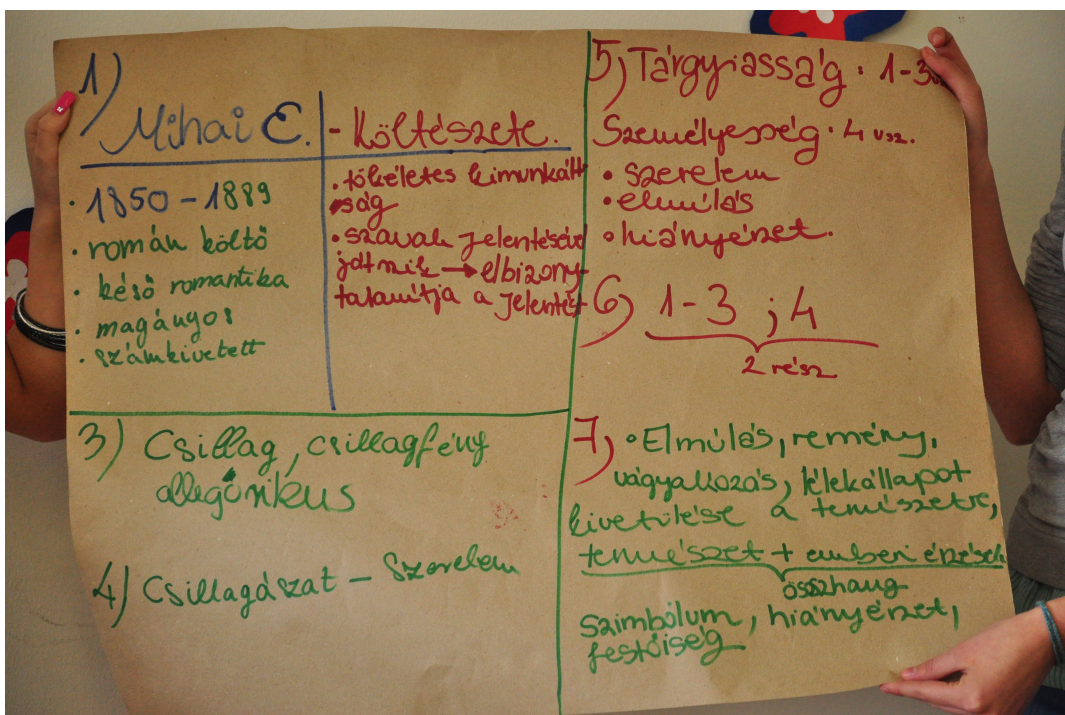 1)
Mihai E.
• 1850 – 1889
• román költő
• késő romantika
• magányos
• számkivetett
- Költészete.
• tökéletes kimunkált
ság
• szavak jelentéséve
játszik → elbizony-
talanítja a jelentést
3) Csillag, csillagfény
allegórikus
4) Csillagászat – Szerelem
5) Tárgyiasság • 1-3
Személyesség • 4 vsz.
• szerelem
• elmúlás
• hiányérzet.
6) 1-3 ; 4
2 rész
7) • Elmúlás, remény,
vágyakozás, lélekállapot
kivetülése a természetre,
természet + emberi érzések
összhang
Szimbólum, hiányérzet,
festőiség